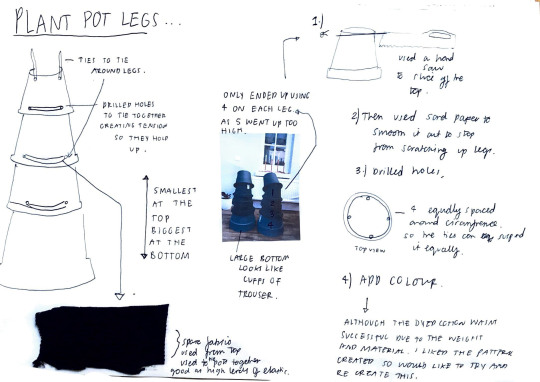 PLANT POT LEGS...
TIES TO TIE
AROUND LEGS.
DRILLED HOLES
TO TIE TOGETHER
CREATING TENSION
SO THEY HOLD
UP.
SMALLEST
AT THE
TOP
BIGGEST
AT THE
BOTTOM
spare fabric
used from top
used to tie pots together
good as high levels of elastic.
ONLY ENDED UP USING
4 ON EACH LEG.
AS 5 WENT UP TOO
HIGH.
1
2
3
4
LARGE BOTTOM
LOOKS LIKE
CUFFS OF
TROUSER.
1.)
used a hand
saw
to slice off the
top.
2) Then used sand paper to
smooth it out to stop
from scratching up legs.
3.) Drilled holes.
TOP VIEW
4 equally spaced
around circumfrence.
so the ties can suspend
it equally.
4) ADD COLOUR.
ALTHOUGH THE DYED COTTON WASNT
SUCCESSFUL DUE TO THE WEIGHT
AND MATERIAL. I LIKED THE PATTERN
CREATED SO WOULD LIKE TO TRY AND
RE CREATE THIS.